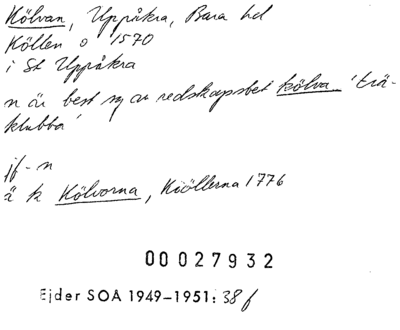 Kölvan, Uppåkra, Bara hd
Köllen o 1570
i St Uppåkra
n är best sg av redskapsbet kölva 'trä-
klubba'
jf - n
ä k Kölvorna, Kiöllerna 1776
00027932
Ejder SOA 1949-1951: 38 f